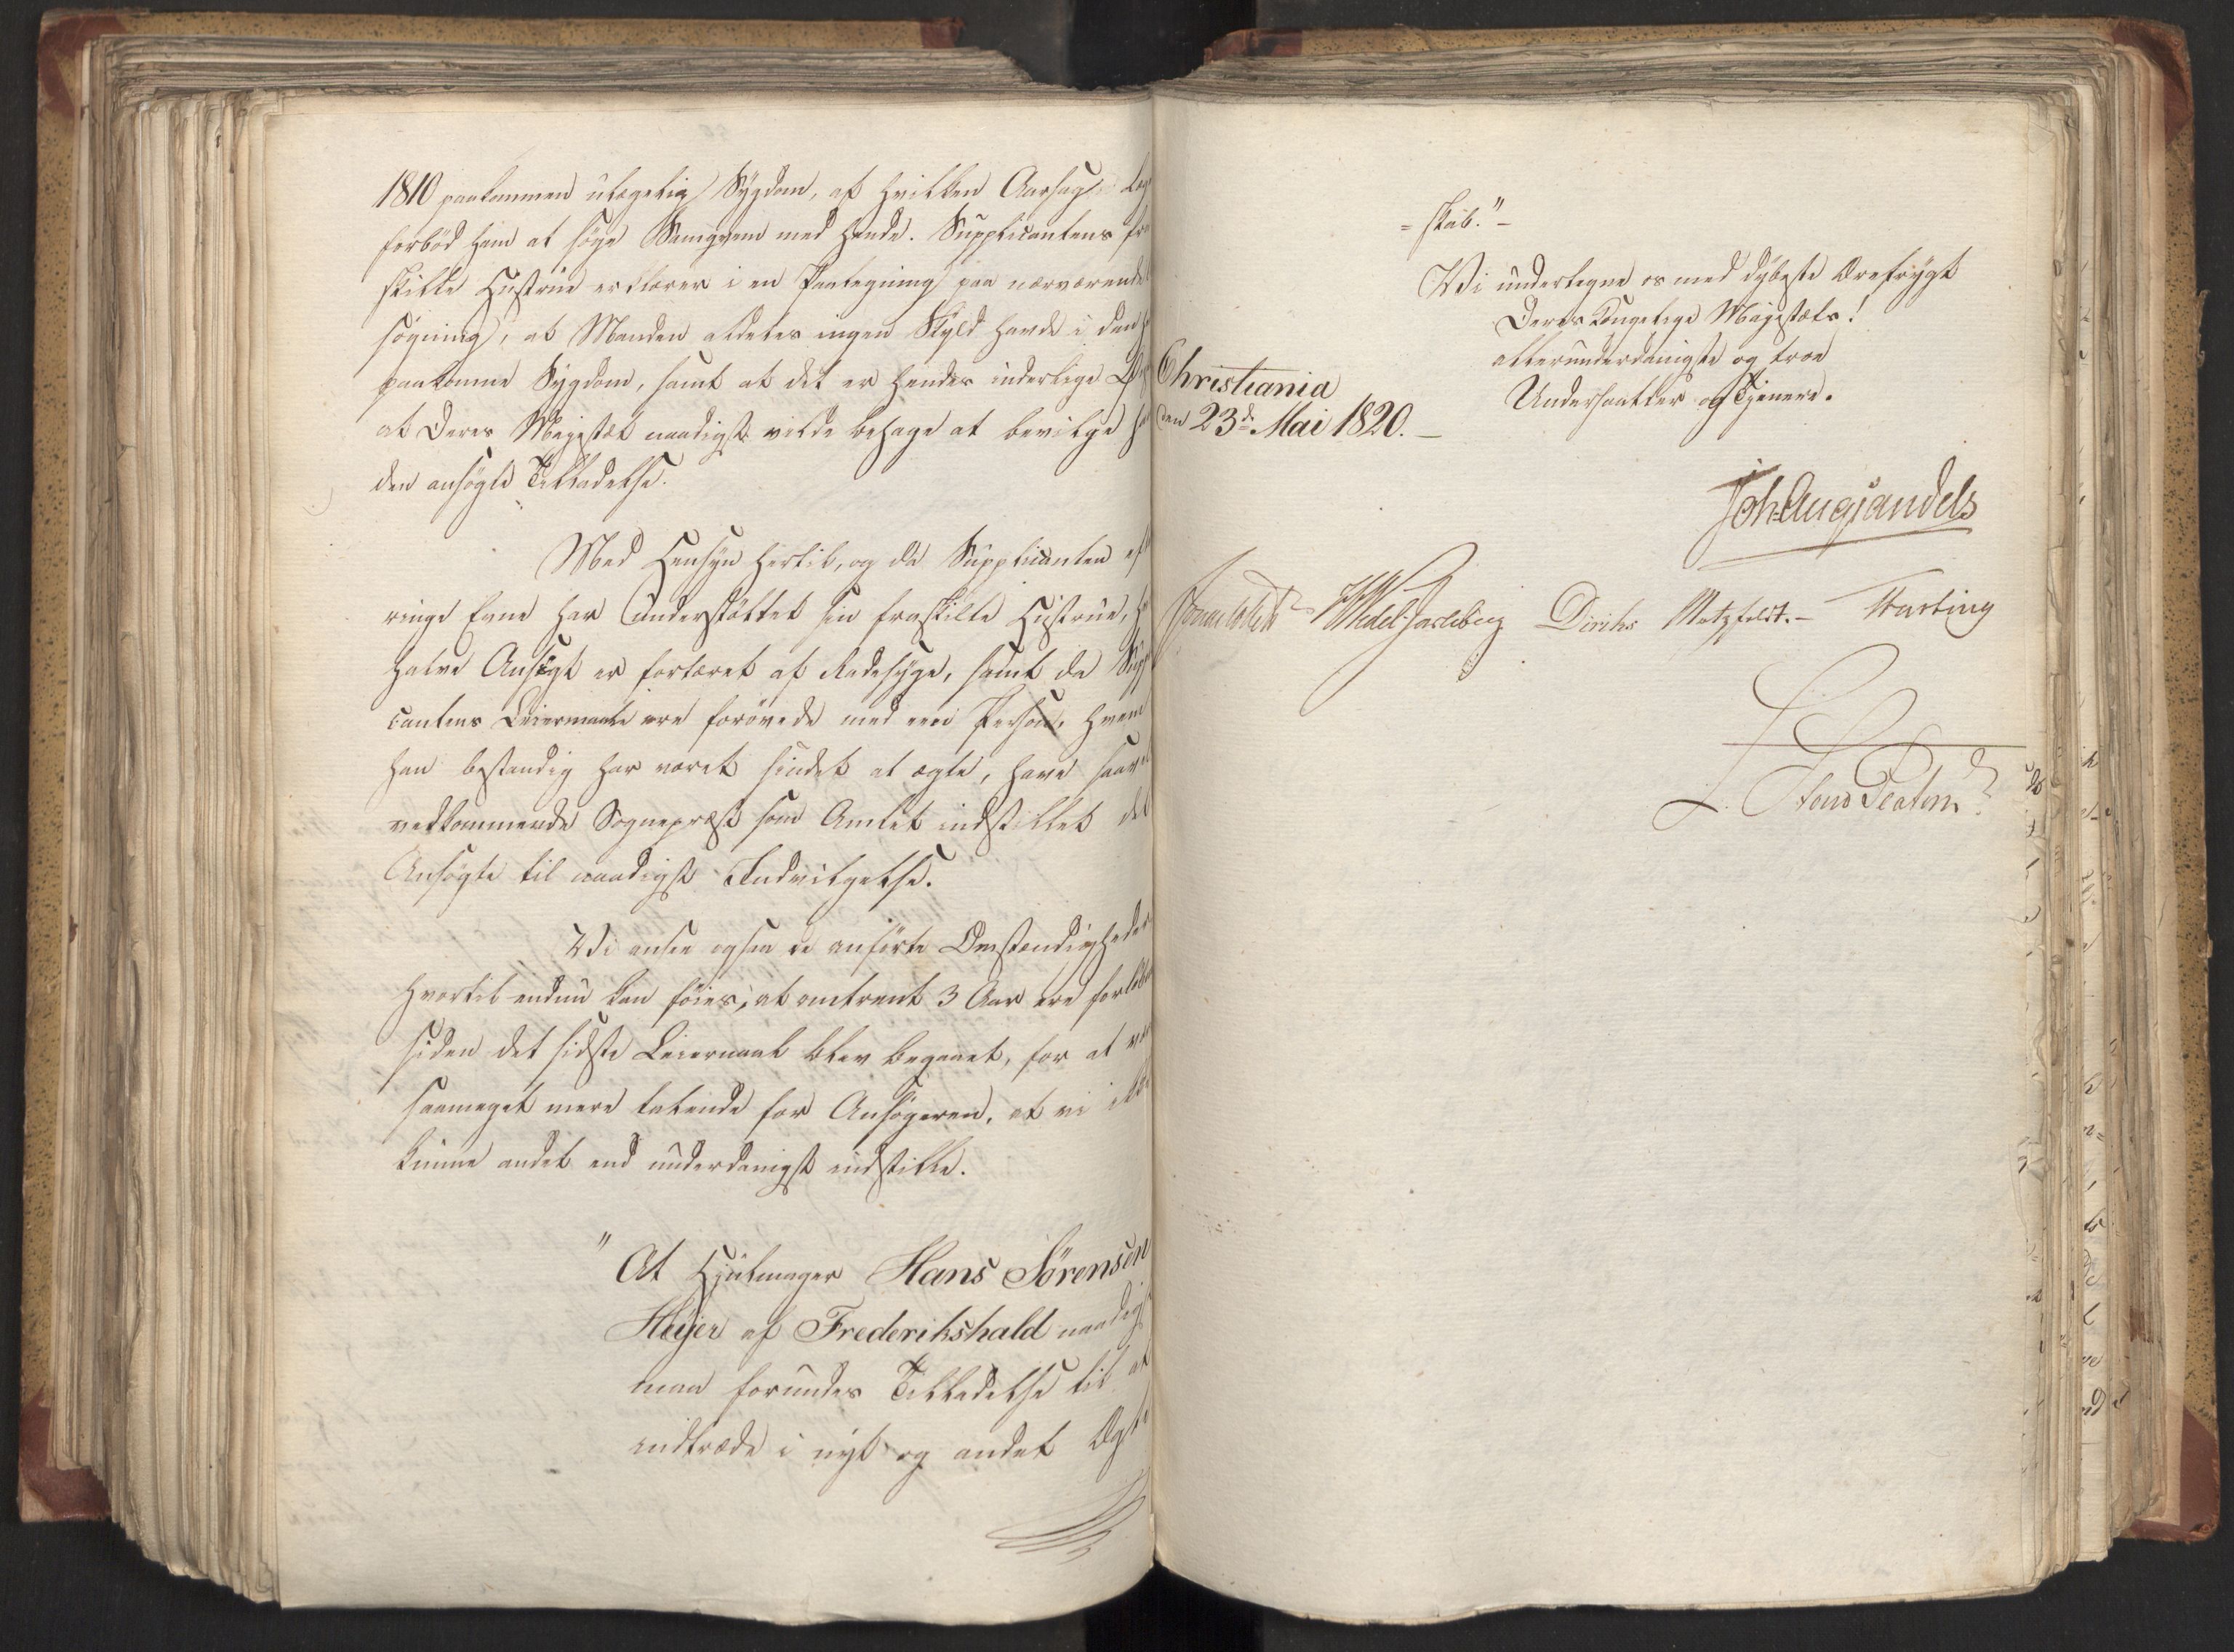 1810 paakommen ulægelig Sygdom, af hvilken Aarsag Læg
forbød ham at søge Samqvem med hende. Supplicantens fra
skilte Hustrue erklærer i en Paategning paa nærværende
søgning, at Manden aldeles ingen Skyld havde i den
paakomne Sygdom, samt at det er hendes inderlige
at Deres Majestæt naadigst vilde behage at bevilge ha
den ansøgte Tilladelse.
Med Hensyn hertil, og da Supplicanten eft
ringe Evne har understøttet sin fraskilte Hustrue, h
halve Ansigt er fortæret af Radesyge, samt da Supp
cantens Leiermaale ere forøvede med een Person, hvem
han bestandig har været sindet at ægte, have saav
vedkommende Sognepræst som Amtet indstillet det
Ansøgte til naadigst Indvilgelse.
Vi ansee ogsaa de anførte Omstændigheder
hvortil endnu kan føies, at omtrent 3 Aar ere forløbne
siden det sidste Leiermaal blev begaaet, for at væ
saameget mere talende for Ansøgeren, at vi ikke
kunne andet end underdanigst indstille.
"At Hjulmager Hans Sörensen
Heyer af Frederikshald naadigst
maa forundes Tilladelse til at
indtræde i nyt og andet Ægte
=skab."-
Vi undertegne os med dybeste Ærefrygt
Deres Kongelige Majestæts!
allerunderdanigste og troe
Undersaatter og Tjenere.
Christiania
den 23d. Mai 1820.-
Joh Aug Sandels
Sommerhielm HWedel Jarlsberg Diriks Motzfeldt.- Fasting
L. Stoud Platou